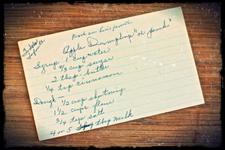 Apple Dumplings "or peach"
Syrup - 1 cup water
2/3 cup sugar
2 tbsp. butter
1/4 tsp cinnamon
Dough -
1/2 cup shortning
1 1/2 cups flour
3/4 tsp salt
4 or 5 tbsp milk